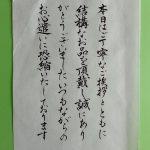 本日はご丁寧なご挨拶とともに
結構なお品を頂戴し誠にあり
がとうございました いつもながらの
お心遣いに恐縮いたしております